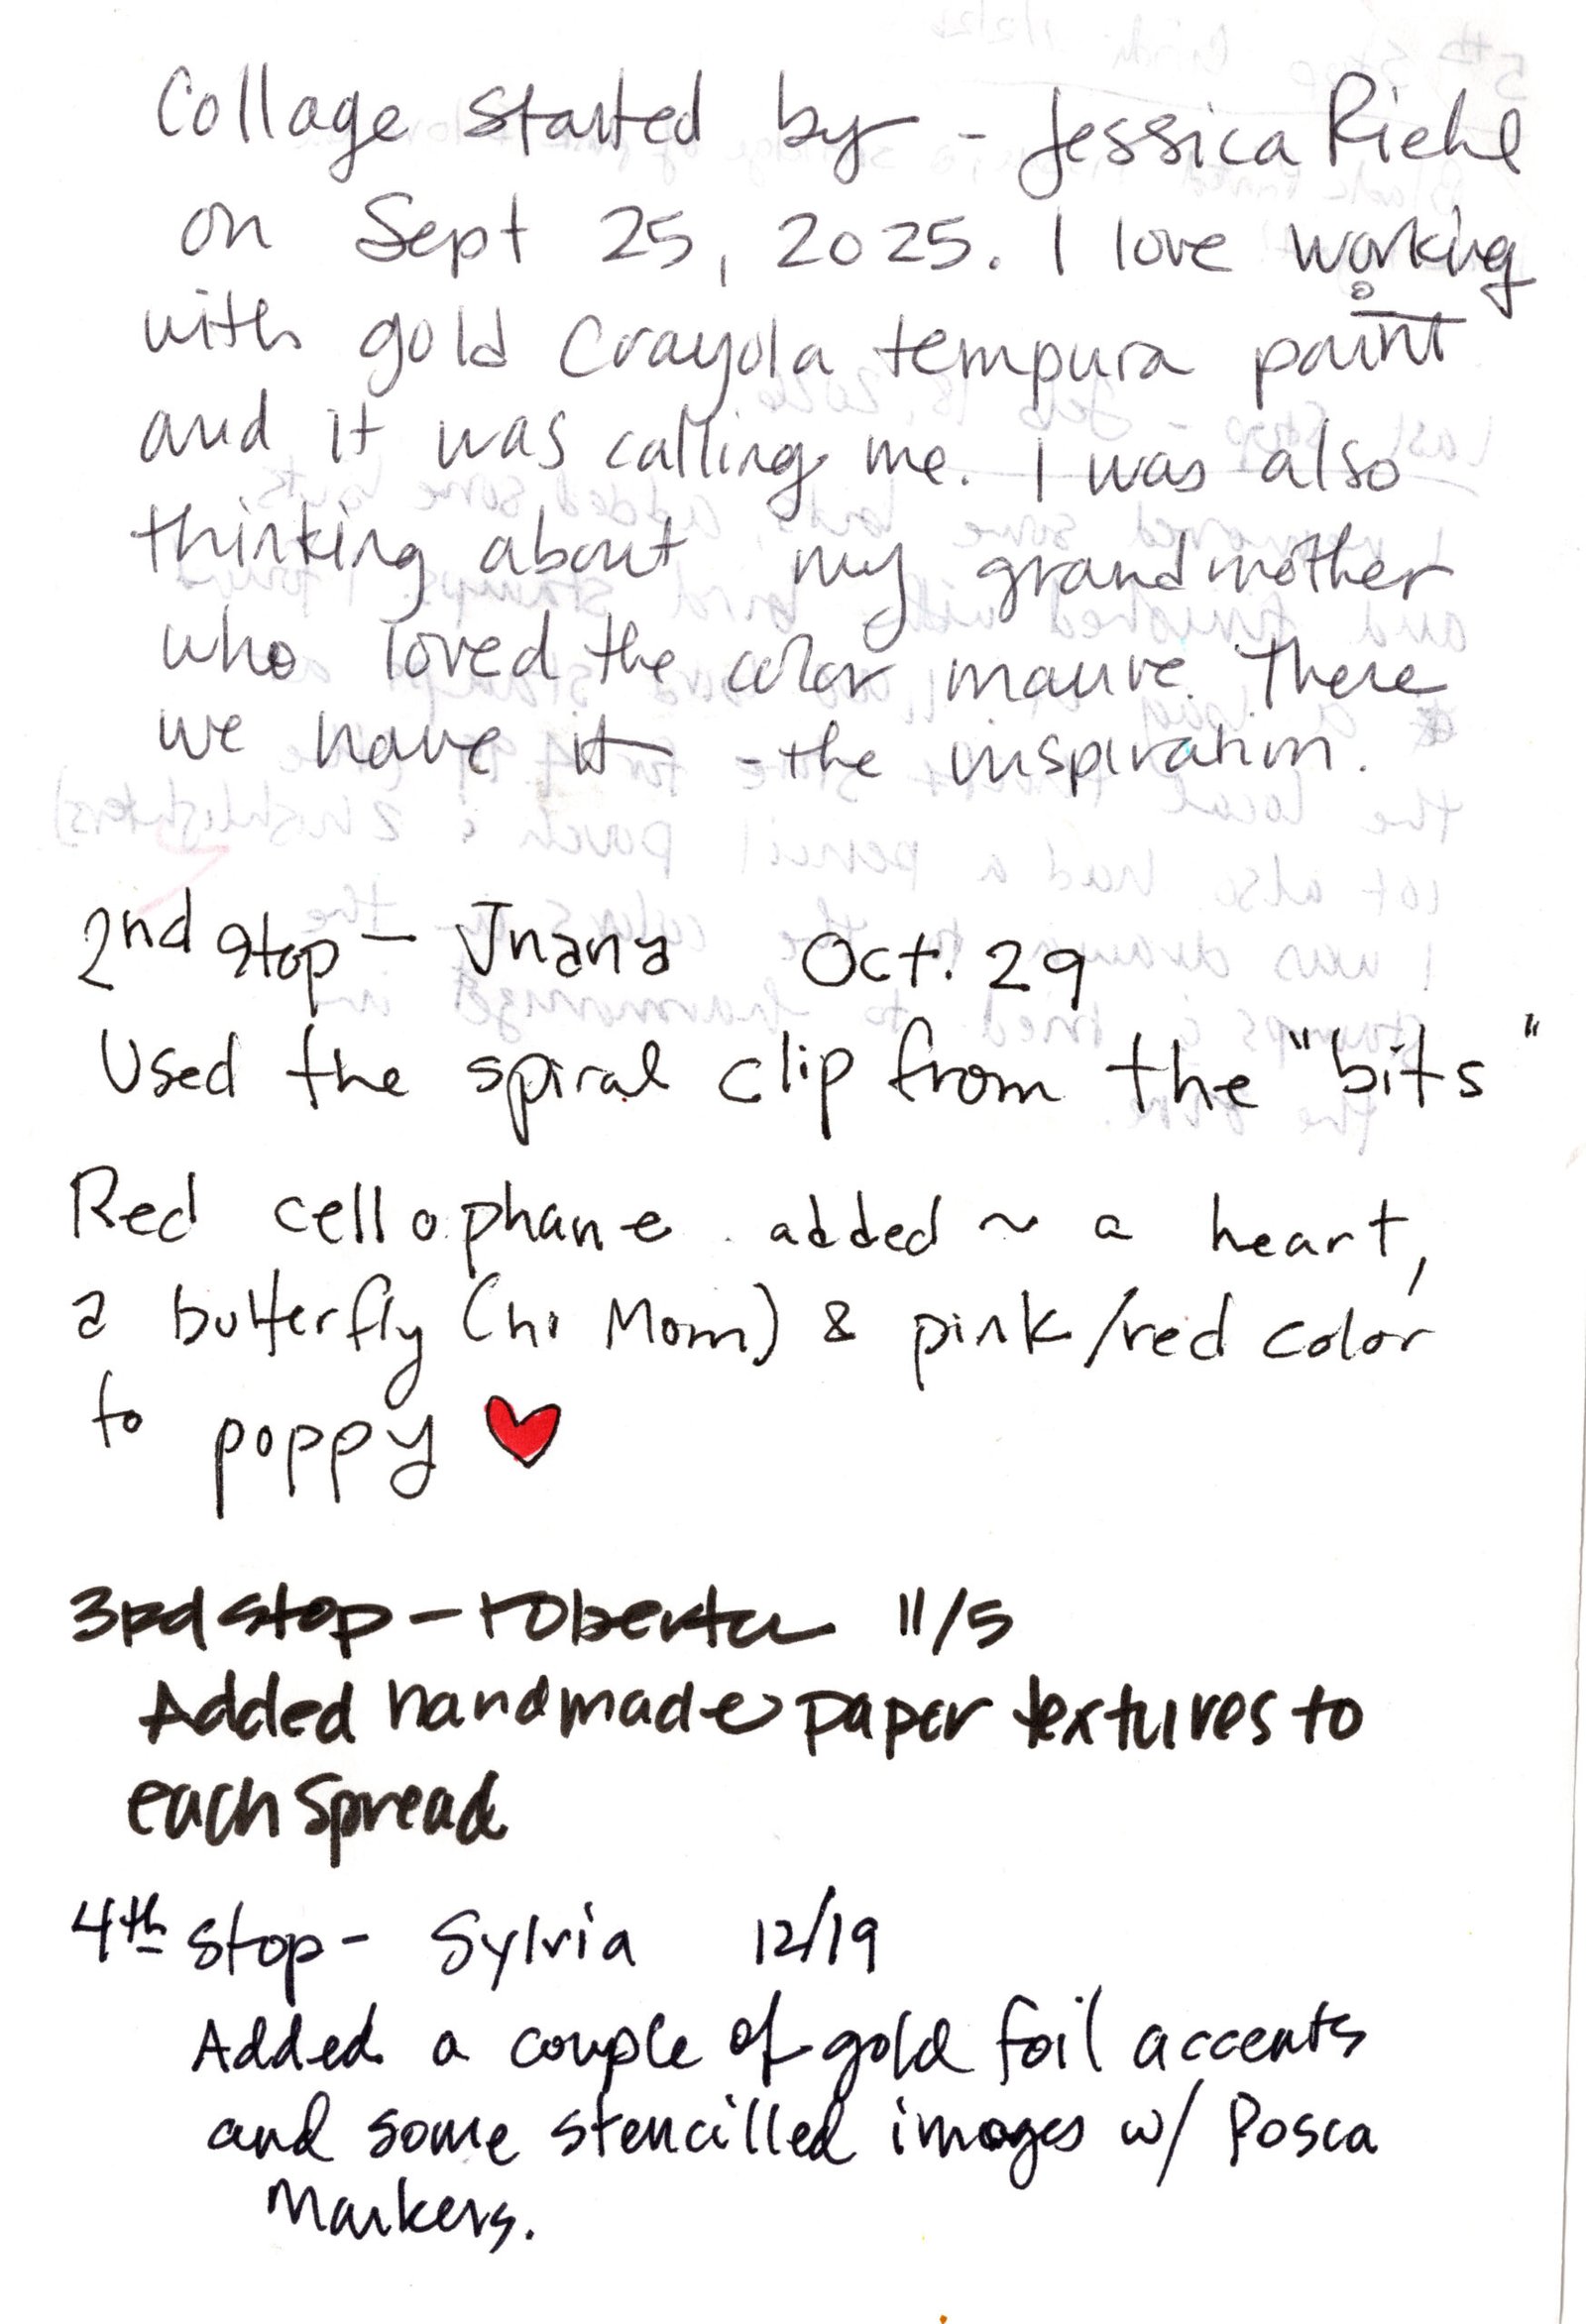 Collage started by - Jessica Riehl
on Sept 25, 2025. I love working
with gold Crayola tempura paint
and it was calling me. I was also
thinking about my grandmother
who loved the color mauve. There
we have it - the inspiration.
2nd stop - Jnana Oct. 29
Used the spiral clip from the "bits"
Red cellophane added ~ a heart,
a butterfly (hi Mom) & pink/red color
to poppy
3rd stop - roberta 11/5
Added handmade paper textures to
each spread
4th stop - Sylvia 12/19
Added a couple of gold foil accents
and some stencilled images w/ Posca
Markers.